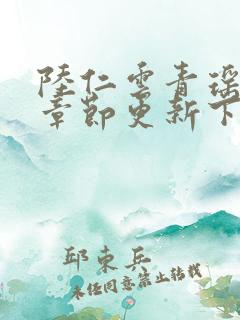 陸仁雲青瑶
章節更新下
邱東兵
未经同意禁止转载